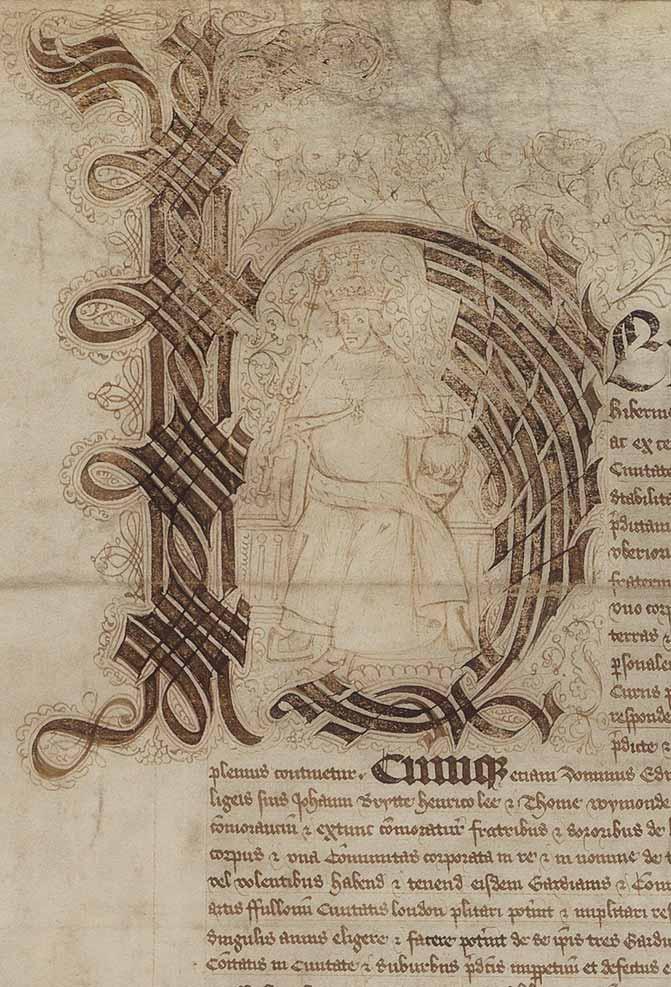 H
hiberni
ac exce
Ciuitate
stabilit
pditam
vberiori
fraterni
vno corp
terras &
psonale
Curiis p
responde
pdicte &
plenius continetur. Cumq etiam dominus Ed
ligeis suis Johanni Brytte henrico lee & Thome Wymonde
comoranciu & extunc comoratur fratribus & sororibus de
corpus & vna Comunitas corporata in re & in nomine de
vel volentibus habend & tenend eisdem Gardianis & Com
artis ffullonu Ciuitatis london plitari potint & implitari
singulis annis eligere & facere potint de se ipis tres Gardi
Comtatis in Ciuitate & suburbiis pdcis imppetuu et defectus